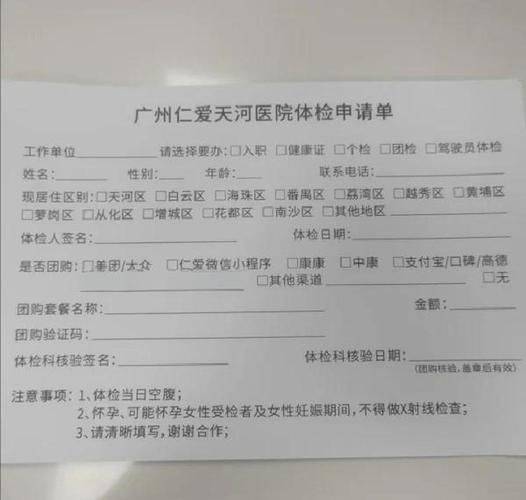 广州仁爱天河医院体检申请单
工作单位________请选择要办:□入职 □健康证 □个检 □团检 □驾驶员体检
姓名:______ 性别:____ 年龄:____ 联系电话:______________
现居住区别:□天河区 □白云区 □海珠区 □番禺区 □荔湾区 □越秀区 □黄埔区
□萝岗区 □从化区 □增城区 □花都区 □南沙区 □其他地区______________
体检人签名:______________ 体检日期:______________
是否团购:□美团/大众 □仁爱微信小程序 □康康 □中康 □支付宝/口碑/高德
□其他渠道______________ □无
团购套餐名称:______________ 金额:________
团购验证码:______________
体检科核验签名:______________ 体检科核验日期:______________
(团购核验,盖章后有效)
注意事项:1、体检当日空腹;
2、怀孕、可能怀孕女性受检者及女性妊娠期间,不得做X射线检查;
3、请清晰填写,谢谢合作;